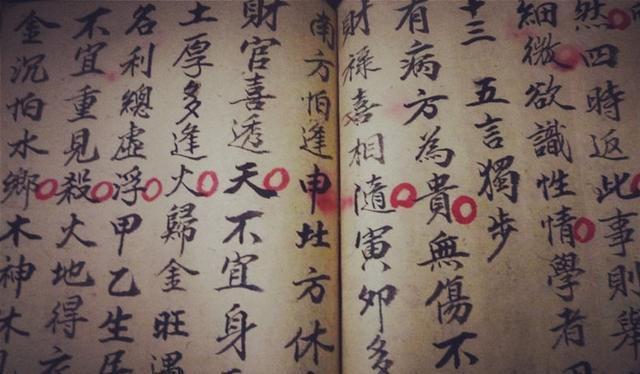 然四時返此事則舉
細微欲識性情學者
十三 五言獨步
有病方為貴無傷不
財祿喜相隨寅卯多
南方怕逢申北方休
財官喜透天不宜身
土厚多逢火歸金旺遇
名利總虛浮甲乙生居
不宜重見殺火地得
金沉怕水鄉木神木